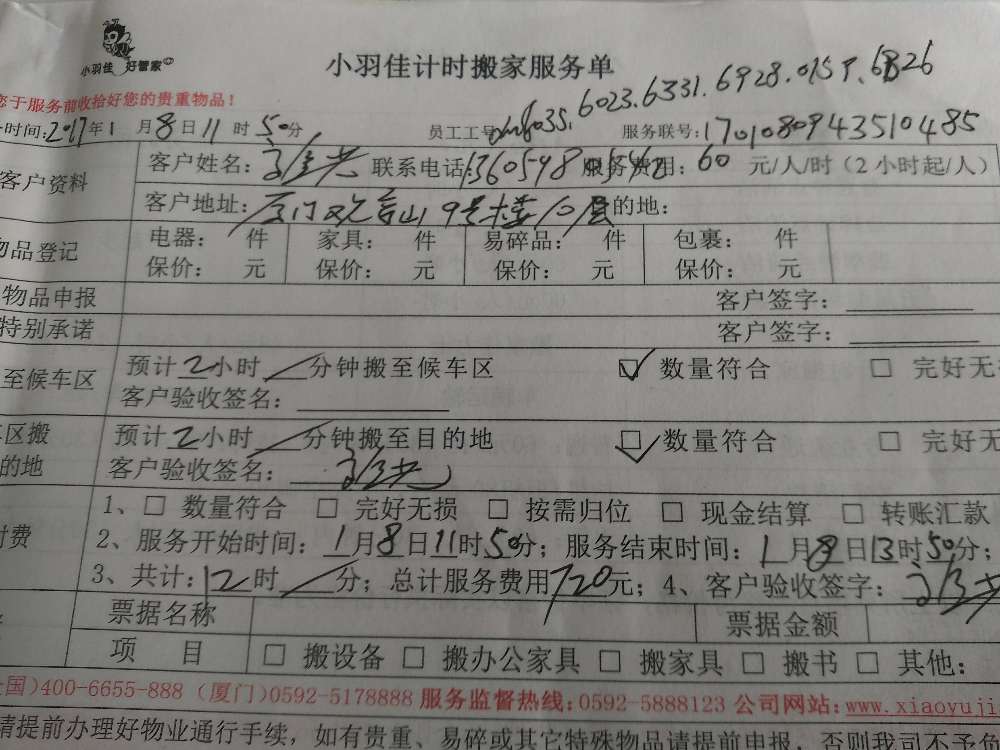 小羽佳 好管家
小羽佳计时搬家服务单
您于服务前收拾好您的贵重物品！
时间：2017年1月8日11时50分 员工工号 6035.6023.6331.6928.0159.6826 服务联号：1701080943510485
客户资料 客户姓名： 联系电话： 服务费用：60 元/人/时（2小时起/人）
客户地址：厦门观音山9号楼 目的地：
物品登记 电器： 件 家具： 件 易碎品： 件 包裹： 件
保价： 元 保价： 元 保价： 元 保价： 元
物品申报 客户签字：
特别承诺 客户签字：
至候车区 预计2小时 分钟搬至候车区 ☑ 数量符合 □ 完好无
客户验收签名：
区搬 预计2小时 分钟搬至目的地 ☑ 数量符合 □ 完好无
的地 客户验收签名：
付费 1、□ 数量符合 □ 完好无损 □ 按需归位 □ 现金结算 □ 转账汇款
2、服务开始时间：1月8日11时50分；服务结束时间：1月8日13时50分；
3、共计：12时 分；总计服务费用720元；4、客户验收签字：
票据名称 票据金额
项 目 □ 搬设备 □ 搬办公家具 □ 搬家具 □ 搬书 □ 其他：
国)400-6655-888 (厦门)0592-5178888 服务监督热线：0592-5888123 公司网站：www.xiaoyuji
请提前办理好物业通行手续，如有贵重、易碎或其它特殊物品请提前申报，否则我司不予